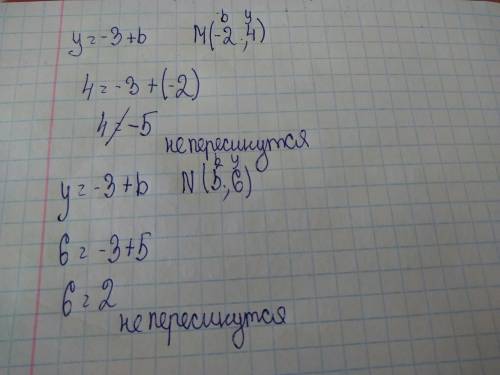 y = -3 + b M(-2; 4)
b y
4 = -3 + (-2)
4 ≠ -5
не пересикнутся
y = -3 + b N(5; 6)
b y
6 = -3 + 5
6 = 2
не пересикнутся